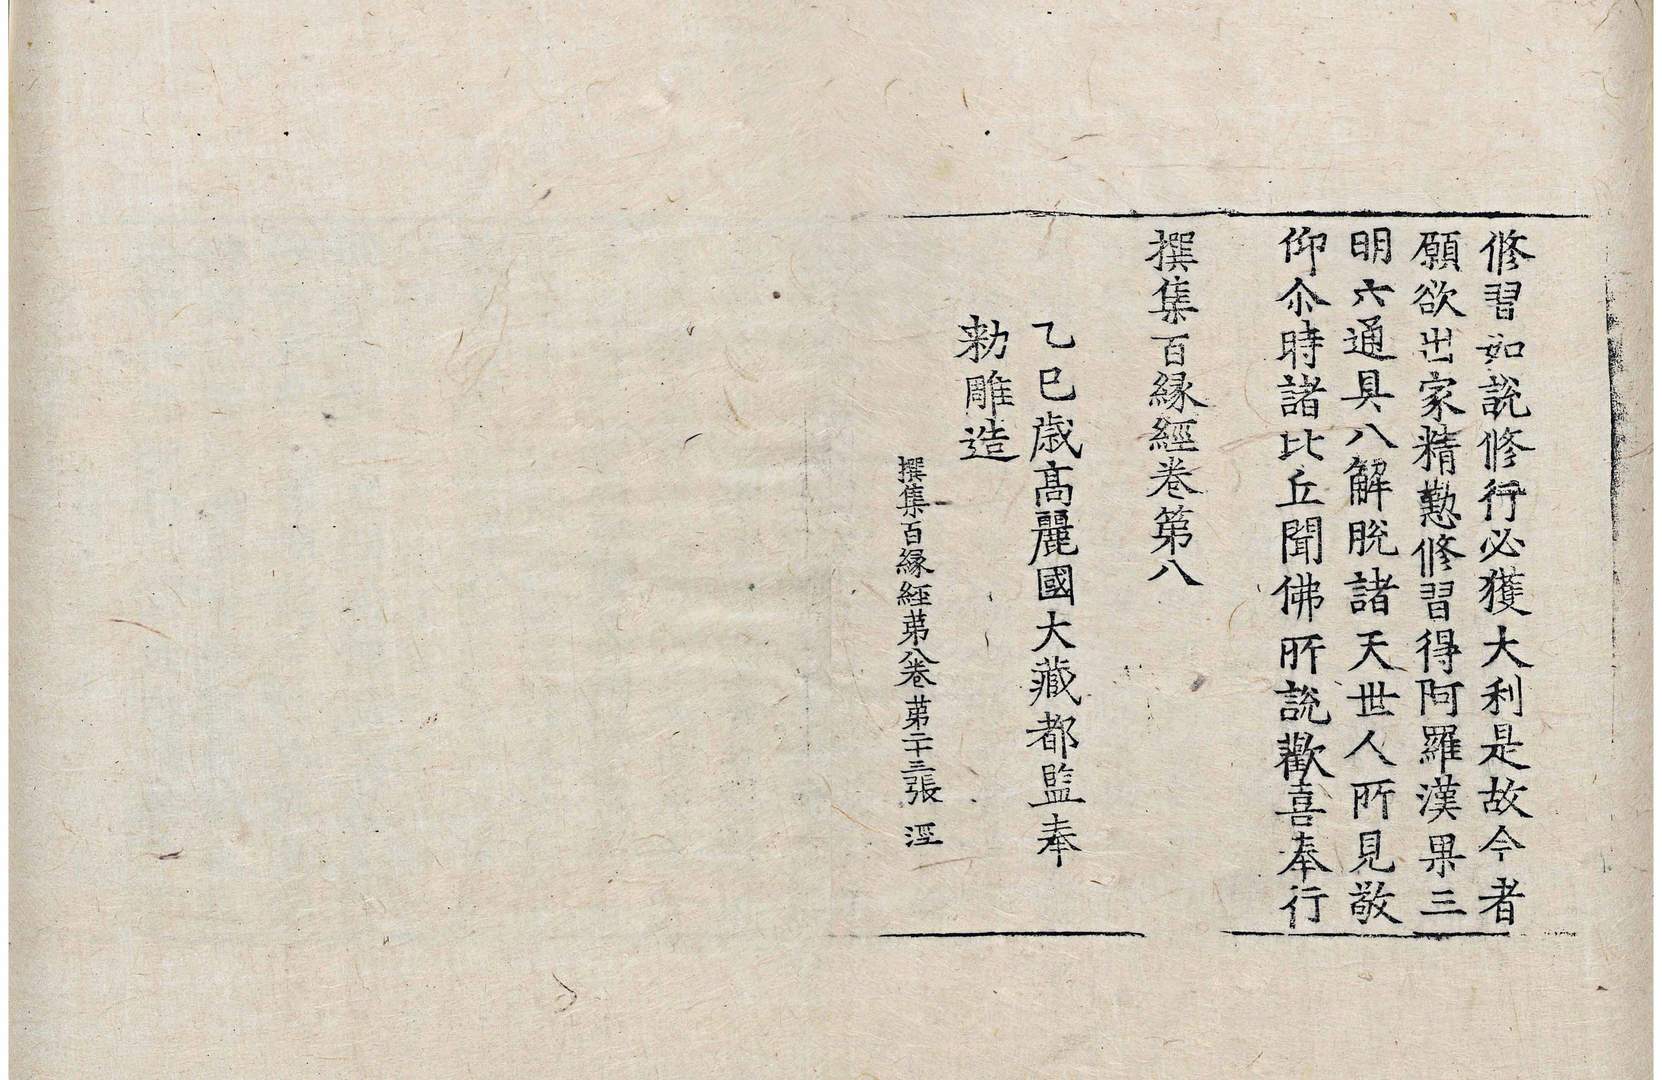 修習如說修行必獲大利是故今者
願欲出家精懃修習得阿羅漢果三
明六通具八解脫諸天世人所見敬
仰尒時諸比丘聞佛所說歡喜奉行
撰集百緣經卷第八
乙巳歲高麗國大藏都監奉
勅雕造
撰集百緣經苐八卷 苐二十三張 涇